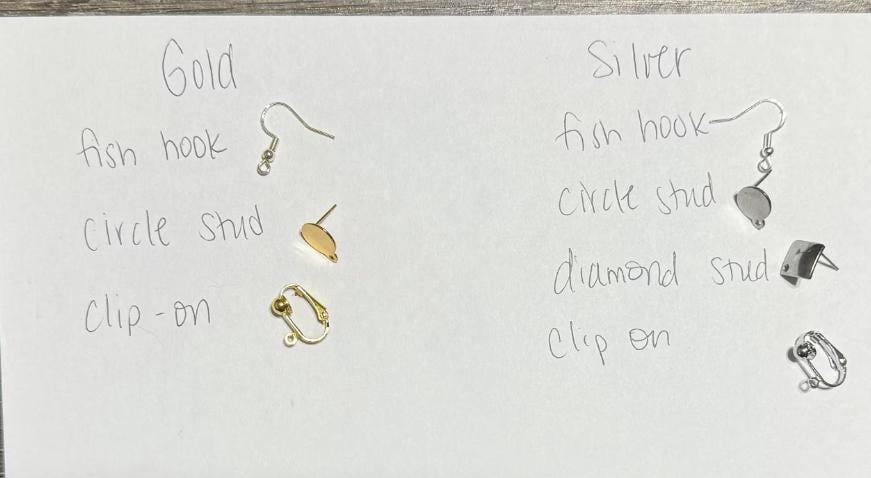 Gold
fish hook
circle stud
clip-on
Silver
fish hook
circle stud
diamond stud
clip on